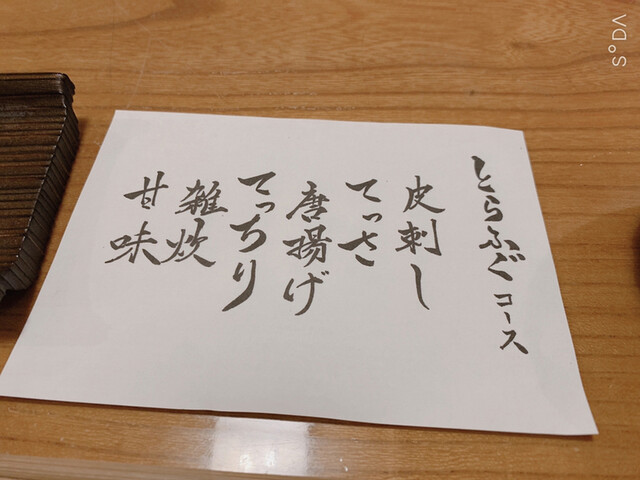 とらふぐコース
皮刺し
てっさ
唐揚げ
てっちり
雑炊
甘味
SODA